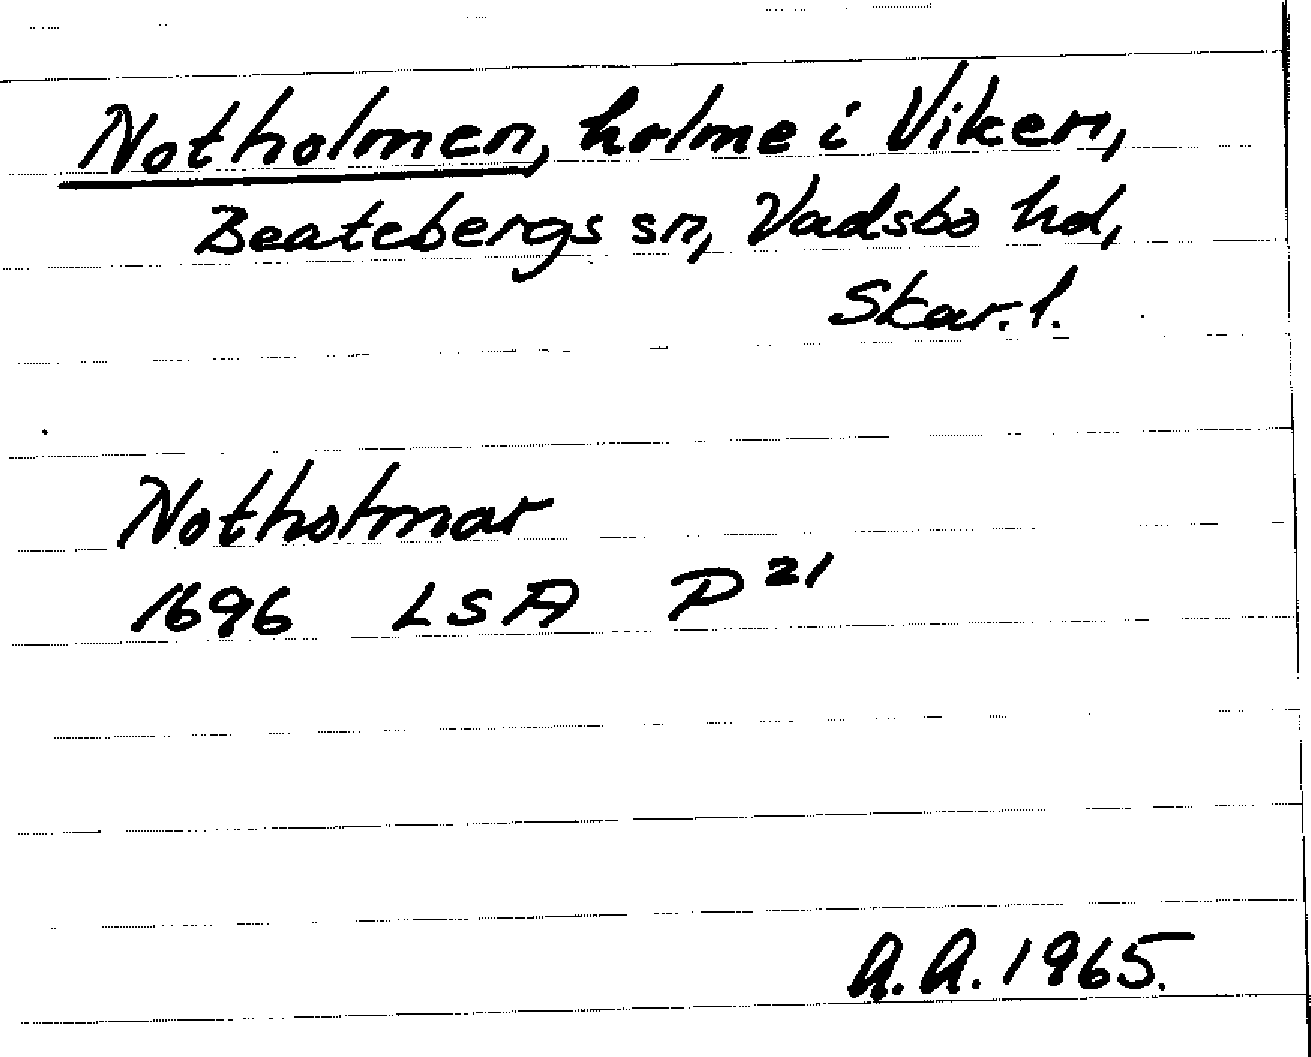 Notholmen, holme i Viken,
Beatebergs sn, Vadsbo hd,
Skar. l.
Notholmar
1696 LSA P²¹
A.A. 1965.